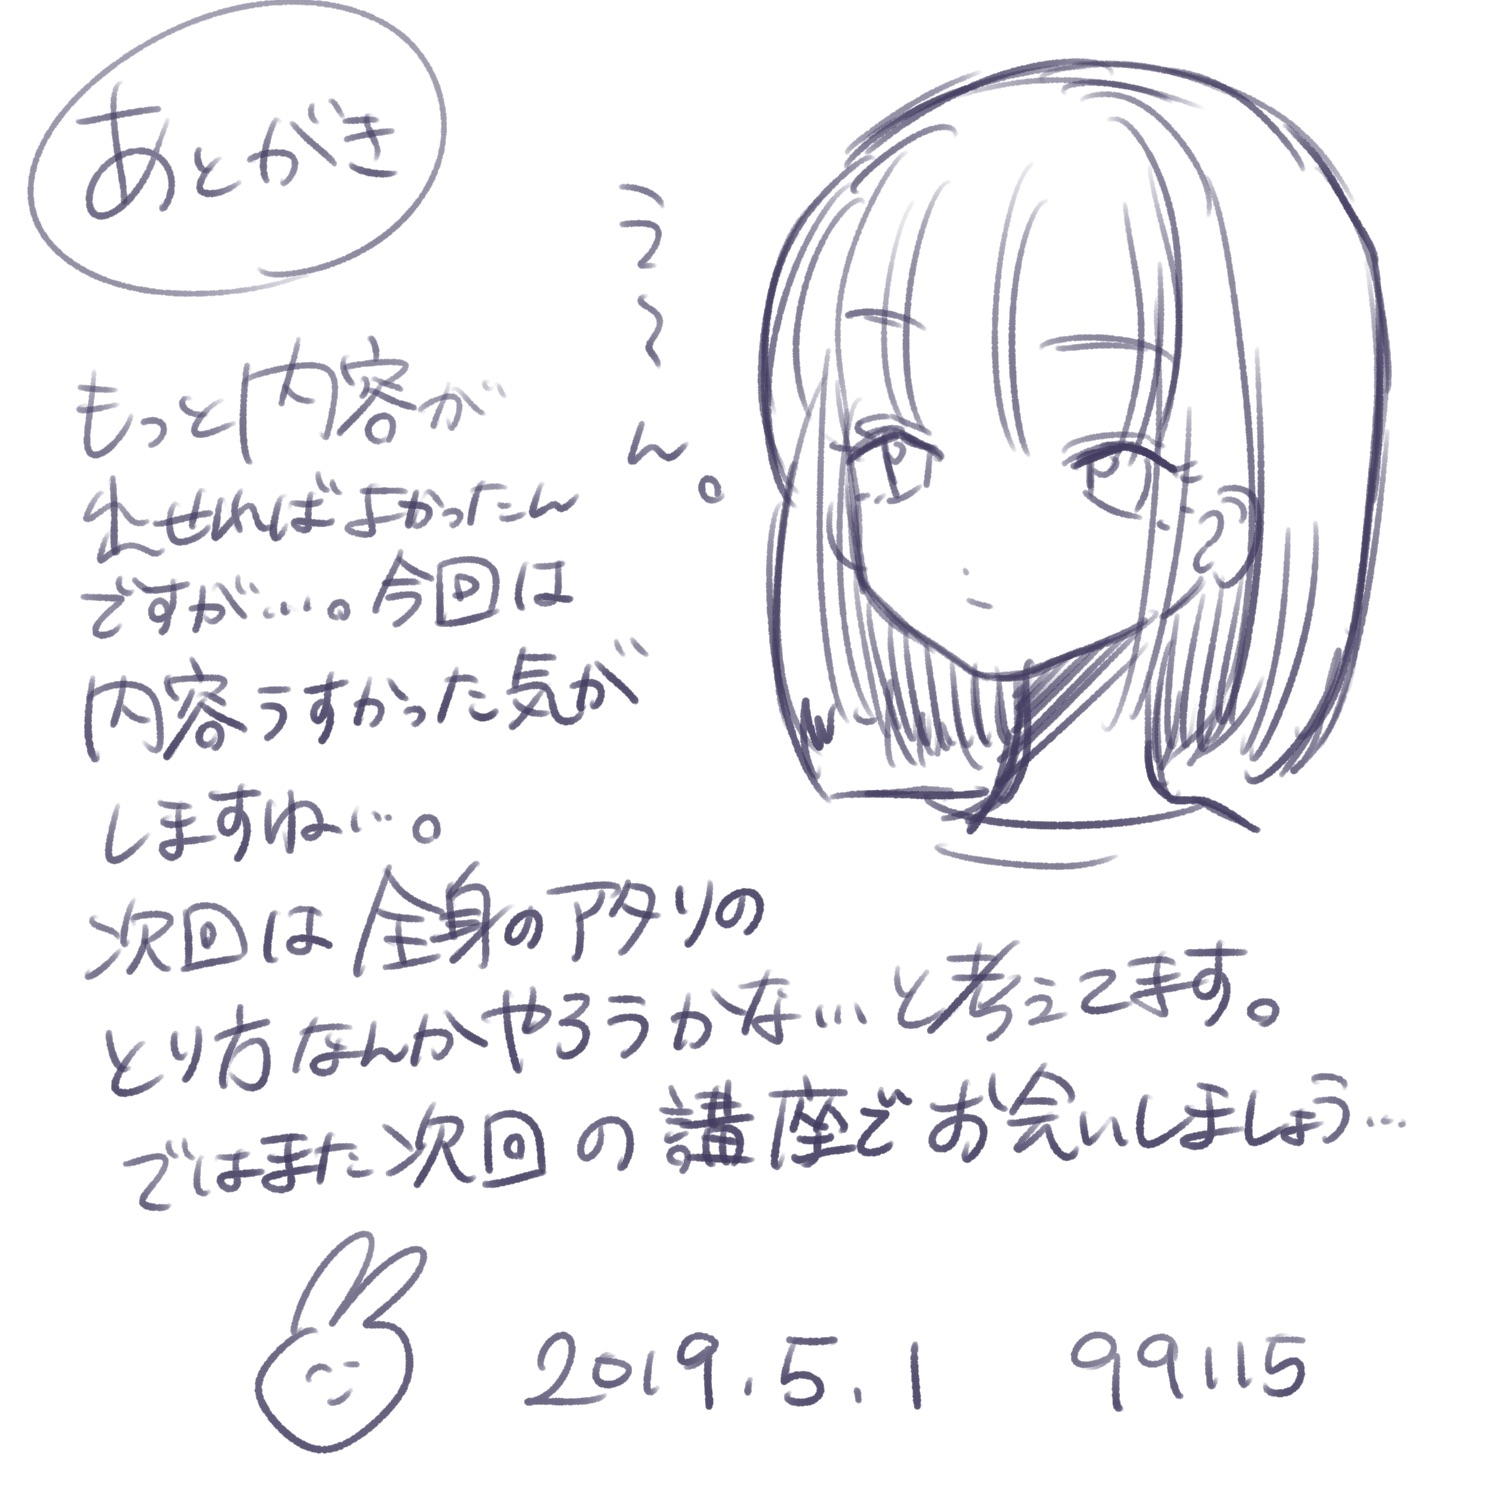 あとがき
う〜ん。
もっと内容が
出せればよかったん
ですが…。今回は
内容うすかった気が
しますね…。
次回は全身のアタリの
とり方なんかやろうかな…と考えてます。
ではまた次回の講座でお会いしましょう…
2019.5.1 99115